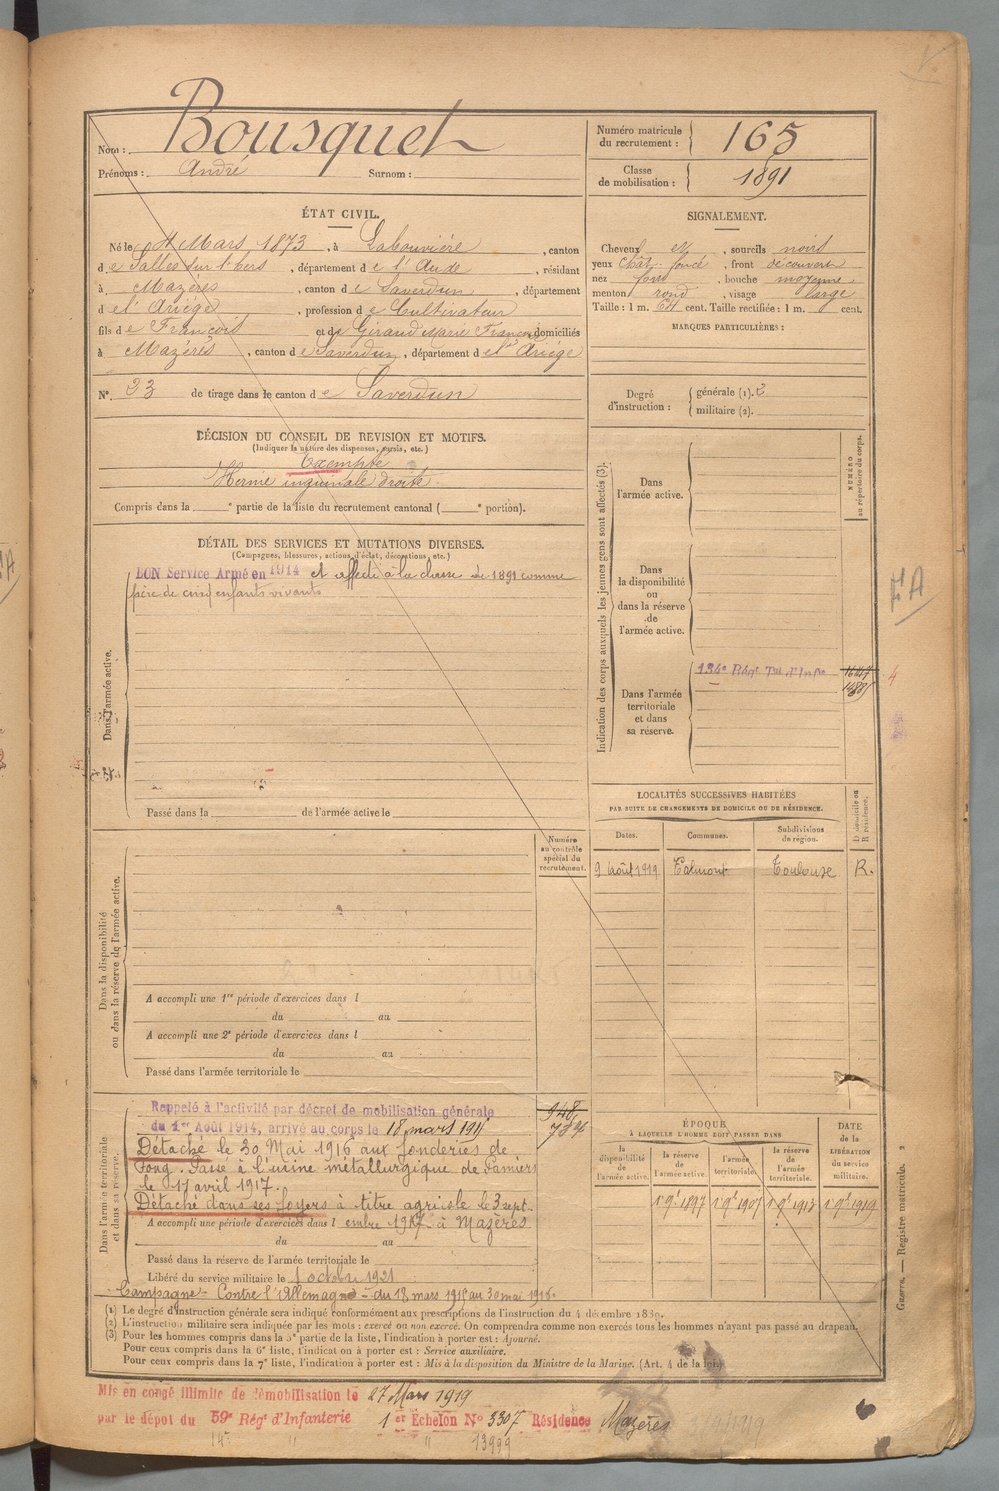 Nom : Bousquet
Prénoms : André Surnom :
Numéro matricule du recrutement : 165
Classe de mobilisation : 1891
ÉTAT CIVIL.
Né le 4 Mars 1873, à Labouvière, canton
de Salles sur l'hers, département de l'Aude, résidant
à Mazères, canton de Saverdun, département
de l'Ariège, profession de Cultivateur
fils de François et de Giraud Marie Françoise domiciliés
à Mazères, canton de Saverdun, département de l'Ariège
N° 23 de tirage dans le canton de Saverdun
SIGNALEMENT.
Cheveux et, sourcils noirs
yeux chât. foncé, front découvert
nez fort, bouche moyenne
menton rond, visage large
Taille : 1 m. cent. Taille rectifiée : 1 m. cent.
MARQUES PARTICULIÈRES :
Degré d'instruction : générale (1).
militaire (2).
DÉCISION DU CONSEIL DE REVISION ET MOTIFS.
(Indiquer la nature des dispenses, sursis, etc.)
Exempté
Hernie inguinale droite.
Compris dans la e partie de la liste du recrutement cantonal ( e portion).
DÉTAIL DES SERVICES ET MUTATIONS DIVERSES.
(Campagnes, blessures, actions d'éclat, décorations, etc.)
Dans l'armée active.
BON Service Armé en 1914 et affecté à la classe de 1891 comme
père de cinq enfants vivants
Passé dans la de l'armée active le
Indication des corps auxquels les jeunes gens sont affectés (3).
NUMÉRO au répertoire du corps.
Dans l'armée active.
Dans la disponibilité ou dans la réserve de l'armée active.
Dans l'armée territoriale et dans sa réserve.
134e Régt Tal d'Infie
4
FA
LOCALITÉS SUCCESSIVES HABITÉES
PAR SUITE DE CHANGEMENTS DE DOMICILE OU DE RÉSIDENCE.
Dates. Communes. Subdivisions de région. D domicile ou R résidence.
9 Août 1919 Calmont Toulouse R.
Numéro au contrôle spécial du recrutement.
Dans la disponibilité ou dans la réserve de l'armée active.
A accompli une 1re période d'exercices dans l
du au
A accompli une 2e période d'exercices dans l
du au
Passé dans l'armée territoriale le
Dans l'armée territoriale et dans sa réserve.
Rappelé à l'activité par décret de mobilisation générale
du 1er Août 1914, arrivé au corps le 18 mars 1915
948
Détaché le 30 Mai 1916 aux fonderies de
Foug. Passé à l'usine métallurgique de Pamiers
le 17 avril 1917.
Détaché dans ses foyers à titre agricole le 3 sept-
A accompli une période d'exercices dans l embre 1917 à Mazères
du au
Passé dans la réserve de l'armée territoriale le
Libéré du service militaire le 1 octobre 1921
Campagne - Contre l'Allemagne - du 18 mars 1915 au 30 mai 1916.
ÉPOQUE
À LAQUELLE L'HOMME DOIT PASSER DANS
la disponibilité de l'armée active. la réserve de l'armée active. l'armée territoriale. la réserve de l'armée territoriale.
DATE de la LIBÉRATION du service militaire.
1 9e 1897 1 9e 1907 1 9e 1913 1 9e 1919
(1) Le degré d'instruction générale sera indiqué conformément aux prescriptions de l'instruction du 4 décembre 1889.
(2) L'instruction militaire sera indiquée par les mots : exercé ou non exercé. On comprendra comme non exercés tous les hommes n'ayant pas passé au drapeau.
(3) Pour les hommes compris dans la 5e partie de la liste, l'indication à porter est : Ajourné.
Pour ceux compris dans la 6e liste, l'indication à porter est : Service auxiliaire.
Pour ceux compris dans la 7e liste, l'indication à porter est : Mis à la disposition du Ministre de la Marine. (Art. 4 de la loi)
Guerre. — Registre matricule. 1
Mis en congé illimité de démobilisation le 27 Mars 1919
par le dépôt du 59e Régt d'Infanterie 1er Echelon N° 3307 Résidence Mazères
14e " " 13999